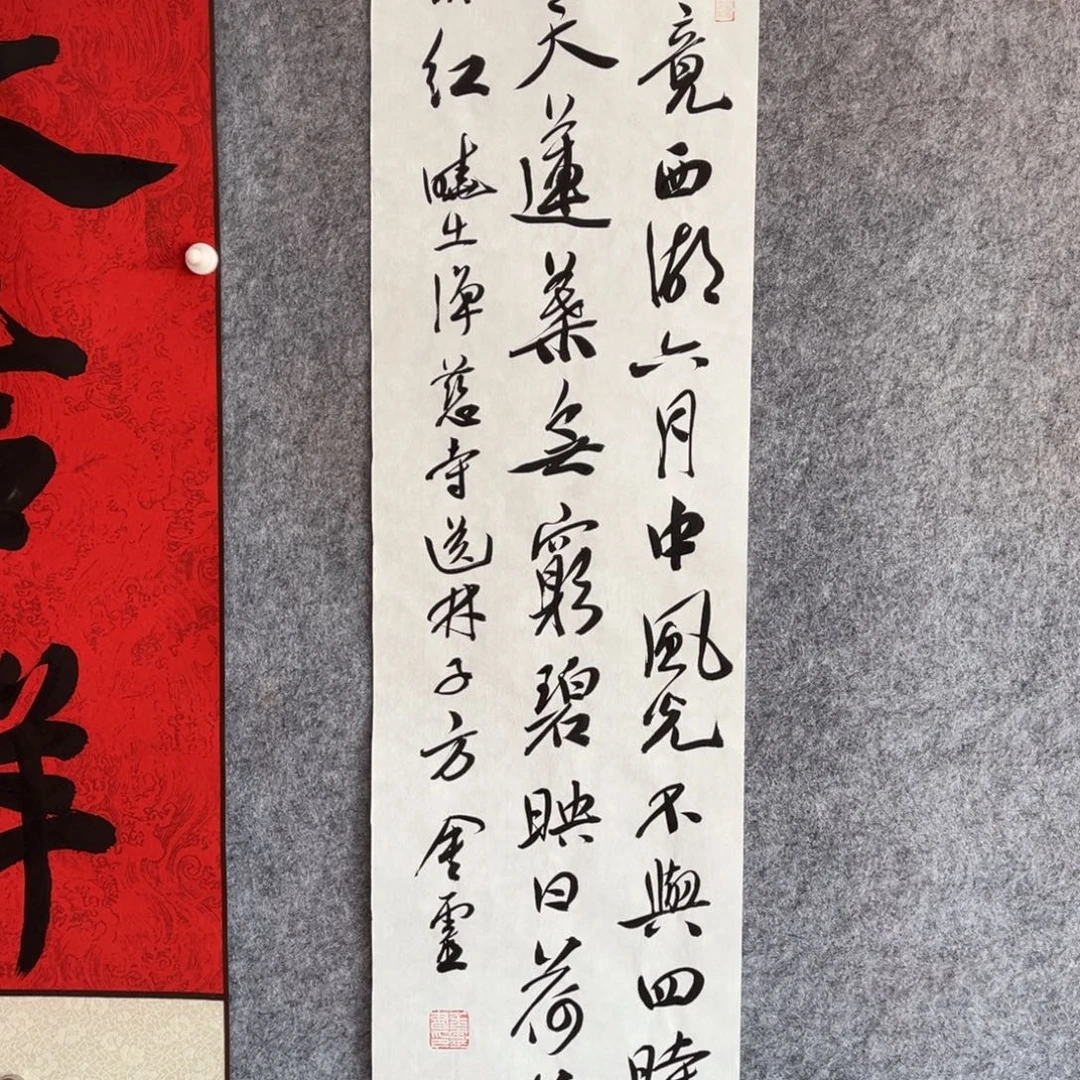 竟西湖六月中風光不與四時
天蓮葉無窮碧映日荷
紅曉出淨慈寺送林子方 金靈